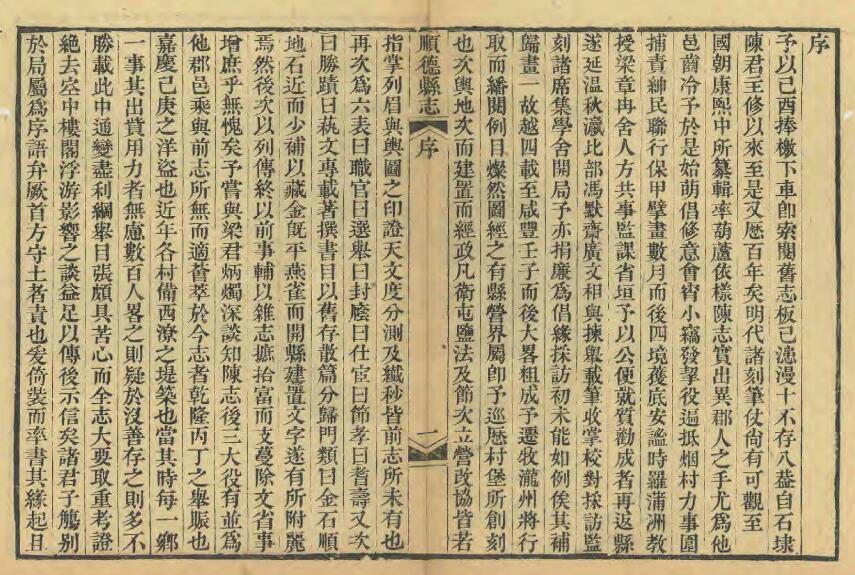 序
予以己酉捧檄下車卽索閱舊志板已漶漫十不存八蓋自石埭
陳君王修以來至是又歷百年矣明代諸刻筆仗尙有可觀至
國朝康熙中所纂輯率葫蘆依樣陳志實出異郡人之手尤爲他
邑齒冷予於是始萌倡修意會宵小竊發挐役逼抵烟村力事圍
捕責紳民聯行保甲擘畫數月而後四境葠底安謐時羅蒲洲教
授梁章冉舍人方共事監課省垣予以公便就質勸成者再返縣
遂延温秋瀛比部馮默齋廣文相與揀舉載筆收掌校對採訪監
刻諸席集學舍開局予亦捐廉爲倡緣採訪初未能如例俟其補
歸畫一故越四載至咸豐壬子而後大畧粗成予遷牧瀧州將行
取而繙閱例目燦然圖經之有縣營界屬卽予巡歷村堡所創刻
也次輿地次而建置而經政凡衛屯鹽法及節次立營改協皆若
順德縣志 序 一
指掌列眉與輿圖之印證天文度分測及纎秒皆前志所未有也
再次爲六表曰職官曰選舉曰封廕曰仕宦曰節孝曰耆壽又次
曰勝蹟曰藝文專載著撰書目以舊存散篇分歸門類曰金石順
地石近而少補以藏金旣平燕雀而開縣建置文字遂有所附麗
焉然後次以列傳終以前事輔以雜志摭拾富而支蔓除文省事
增庶乎無愧矣予嘗與梁君炳燭深談知陳志後三大役有並爲
他郡邑乘與前志所無而適薈萃於今志者乾隆丙丁之舉賑也
嘉慶己庚之洋盜也近年各村備西潦之堤築也當其時每一鄉
一事其出貲用力者無慮數百人畧之則疑於沒善存之則多不
勝載此中通變盡利綱舉目張頗具苦心而全志大要取重考證
絶去空中樓閣浮游影響之談益足以傳後示信矣諸君子觴別
於局屬爲序語弁厥首方守土者責也爰倚裝而率書其緣起且